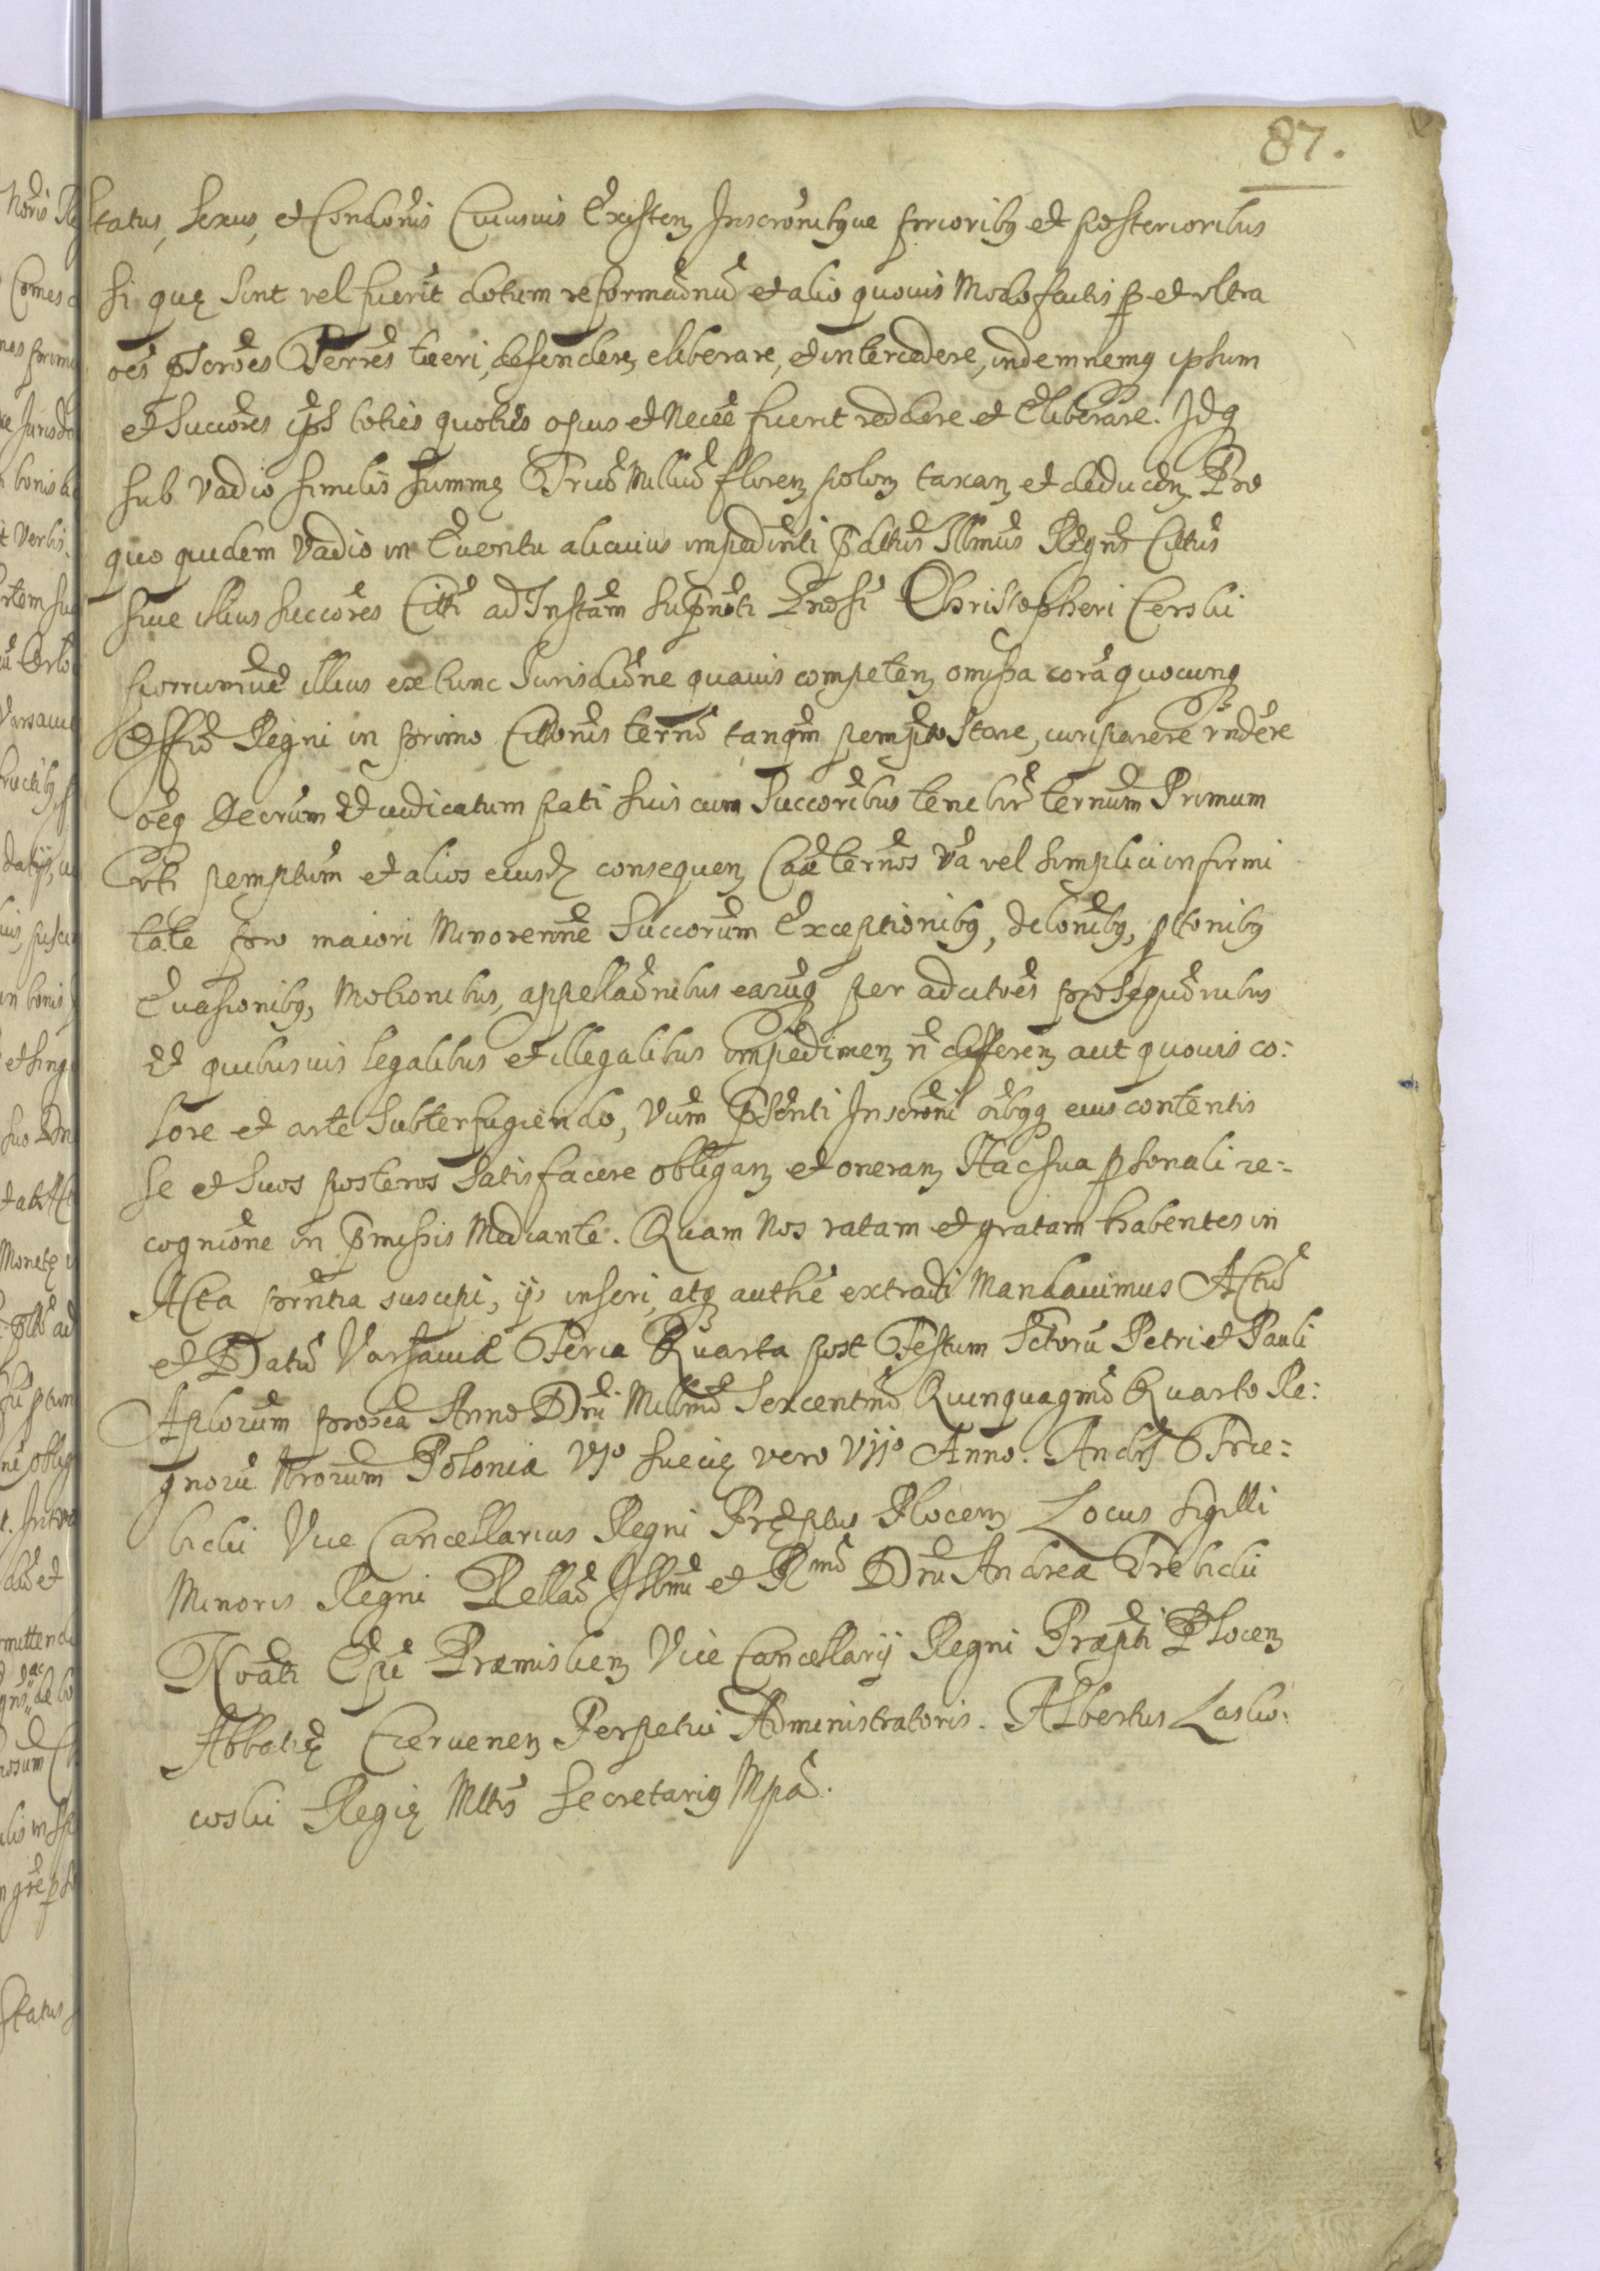 87.
status, sexus, et Condonis Cuiusuis Existen Inscronibque prioribq et posterioribus
si quę sint vel fuerit dotium reformaonu et alio quouis Modo factis p et vltra
oes pscrões Terres tueri, defendere, eliberare, et intercedere, indemnemq ipsum
et Succores ips toties quoties opus et Necee fuerit reddere et Eliberare. Idq
sub Vadio similis summę Triu Milliu floren polon taxan et deducen Pro
quo quidem Vadio in Euentu alicuius impedimti Pdictus Illmus Regns Citus
siue illius succores Citti ad Instam supnoti Gnosi Christopheri Cerski
suorumue illius ex tunc Jurisdione quauis competen omissa cora quocunq
Officio Regni in primo Citonis termo tanqm pempto Stare, iuri parere rndere
oeq Decrum et iudicatum pati suis cum Succoribus tenebir ternum Primum
Citti pemptum et alios eiusd consequen Cae ternos Va vel simplici infirmi
tate pro maiori Minorenne Succorum Exceptionibq, delonibq, ptonibq
Euasionibq, Motionibus, appellaonibus earuq per adcitoes prosequonibus
Et quibusuis legalibus et illegalibus impedimen n differen aut quouis co:
lore et arte Subterfugiendo, Vum Psenti Inscroni oibqq eius contentis
se et Suos posteros Satisfacere obligan et oneran Hac sua psonali re-
cognione in pmissis Mediante. Quam Nos ratam et gratam habentes in
Acta prntia suscipi, ijs inseri, atq authe extradi Mandauimus Actu
et Datu Varsauiæ Feria Quarta post Festum Sctoru Petri et Pauli
Aplorum proxia Anno Dni Millmo Sexcentmo Quinquagmo Quarto Re:
gnoru Nrorum Poloniæ VJo suecię vero VIIo Anno. Andrs Trze-
bicki Vice Cancellarius Regni Pręptus Plocen Locus sigilli
Minoris Regni Rellao Illmi et Rmo Dni Andreæ Trebicki
Noati Epi Præmislien Vice Cancellarij Regni Præpti Plocen
Abbatię Czeruenen Perpetui Administratoris. Albertus Lasko:
woski Regię Mttis Secretariq Mpa.